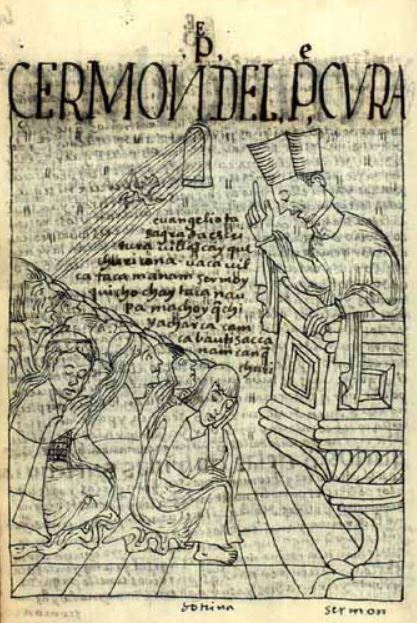 P,
CERMON DEL, P.ᵉ CVRA
euangelio ta
sagrada escri
tura uillascay que
churicona uaca uil
ca taca manam serboy
quicho chay taca nau
pa machoy q̃chi
yacharca cam
ca bautisacca
nam canq̃
churi
dotrina
sermon